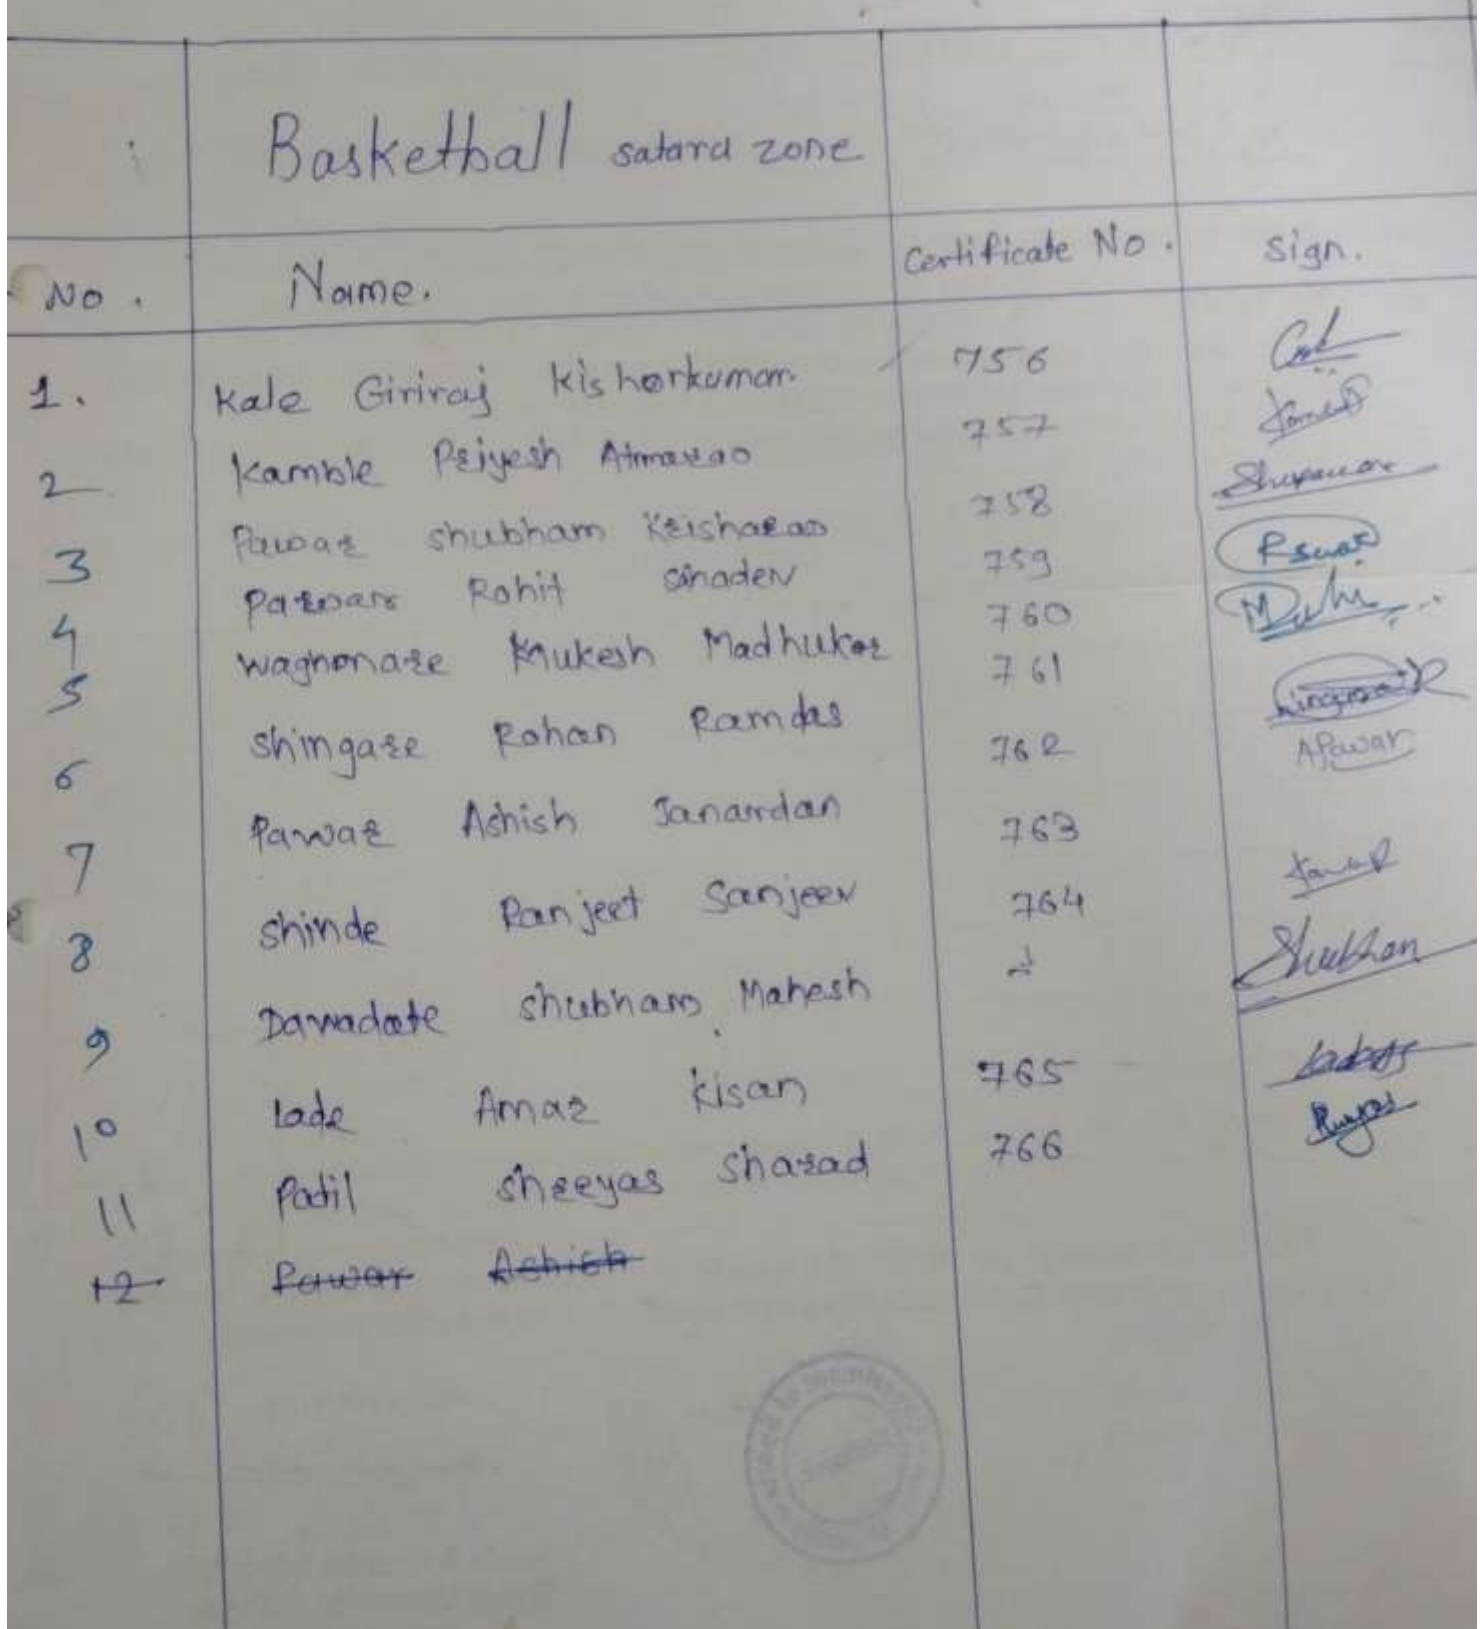 Basketball satara zone
No. Name. Certificate No. Sign.
1. Kale Giriraj Kishorkumar 756
2 Kamble Priyesh Atmarao 757
3 Pawar shubham Krisharao 758
4 Pawar Rohit 759
5 Waghmare Mukesh Madhukar 760
6 Shingare Rohan Ramdas 761
7 Pawar Ashish Janardan 762 APawar
8 Shinde Ranjeet Sanjeev 763
9 Dawadate Shubham Mahesh 764 Shubham
10 Lade Amar Kisan 765
11 Patil Shreyas Sharad 766
12 Pawar Ashish